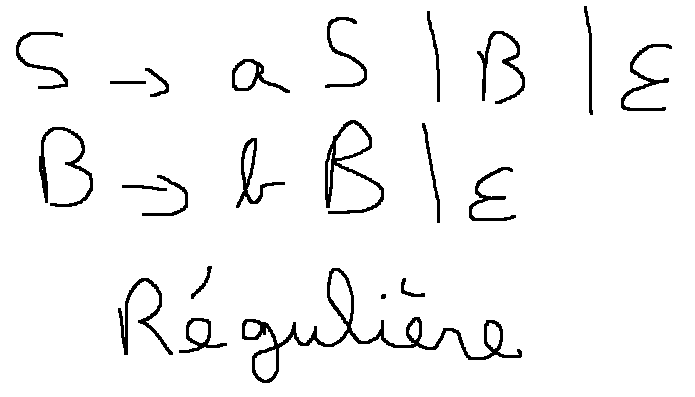 S → aS | B | ε
B → bB | ε
Régulière